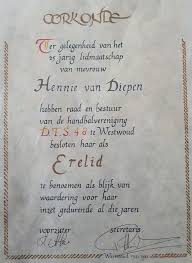 OORKONDE
Ter gelegenheid van het
25 jarig lidmaatschap
van mevrouw
Hennie van Diepen
hebben raad en bestuur
van de handbalvereniging
D.T.S.48 te Westwoud
besloten haar als
Erelid
te benoemen als blijk van
waardering voor haar
inzet gedurende al die jaren
voorzitter secretaris
Westwoud